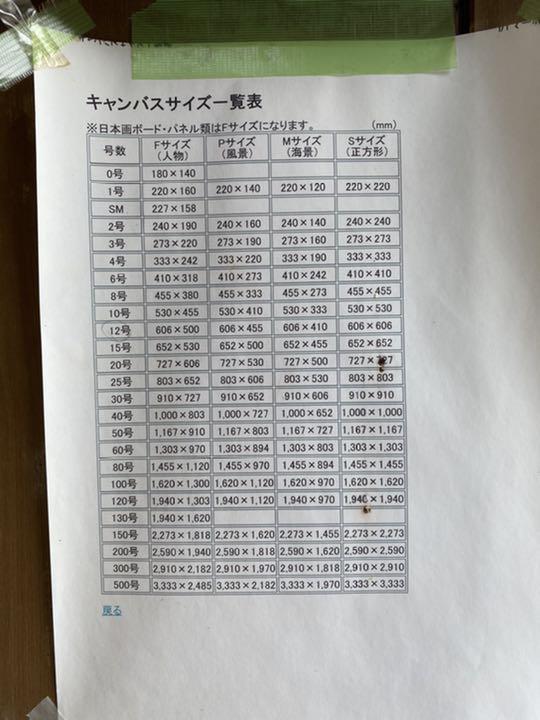 キャンバスサイズ一覧表
※日本画ボード・パネル類はFサイズになります。 (mm)
号数 Fサイズ(人物) Pサイズ(風景) Mサイズ(海景) Sサイズ(正方形)
0号 180×140
1号 220×160 220×140 220×120 220×220
SM 227×158
2号 240×190 240×160 240×140 240×240
3号 273×220 273×190 273×160 273×273
4号 333×242 333×220 333×190 333×333
6号 410×318 410×273 410×242 410×410
8号 455×380 455×333 455×273 455×455
10号 530×455 530×410 530×333 530×530
12号 606×500 606×455 606×410 606×606
15号 652×530 652×500 652×455 652×652
20号 727×606 727×530 727×500 727×727
25号 803×652 803×606 803×530 803×803
30号 910×727 910×652 910×606 910×910
40号 1,000×803 1,000×727 1,000×652 1,000×1,000
50号 1,167×910 1,167×803 1,167×727 1,167×1,167
60号 1,303×970 1,303×894 1,303×803 1,303×1,303
80号 1,455×1,120 1,455×970 1,455×894 1,455×1,455
100号 1,620×1,300 1,620×1,120 1,620×970 1,620×1,620
120号 1,940×1,303 1,940×1,120 1,940×970 1,940×1,940
130号 1,940×1,620
150号 2,273×1,818 2,273×1,620 2,273×1,455 2,273×2,273
200号 2,590×1,940 2,590×1,818 2,590×1,620 2,590×2,590
300号 2,910×2,182 2,910×1,970 2,910×1,818 2,910×2,910
500号 3,333×2,485 3,333×2,182 3,333×1,970 3,333×3,333
戻る